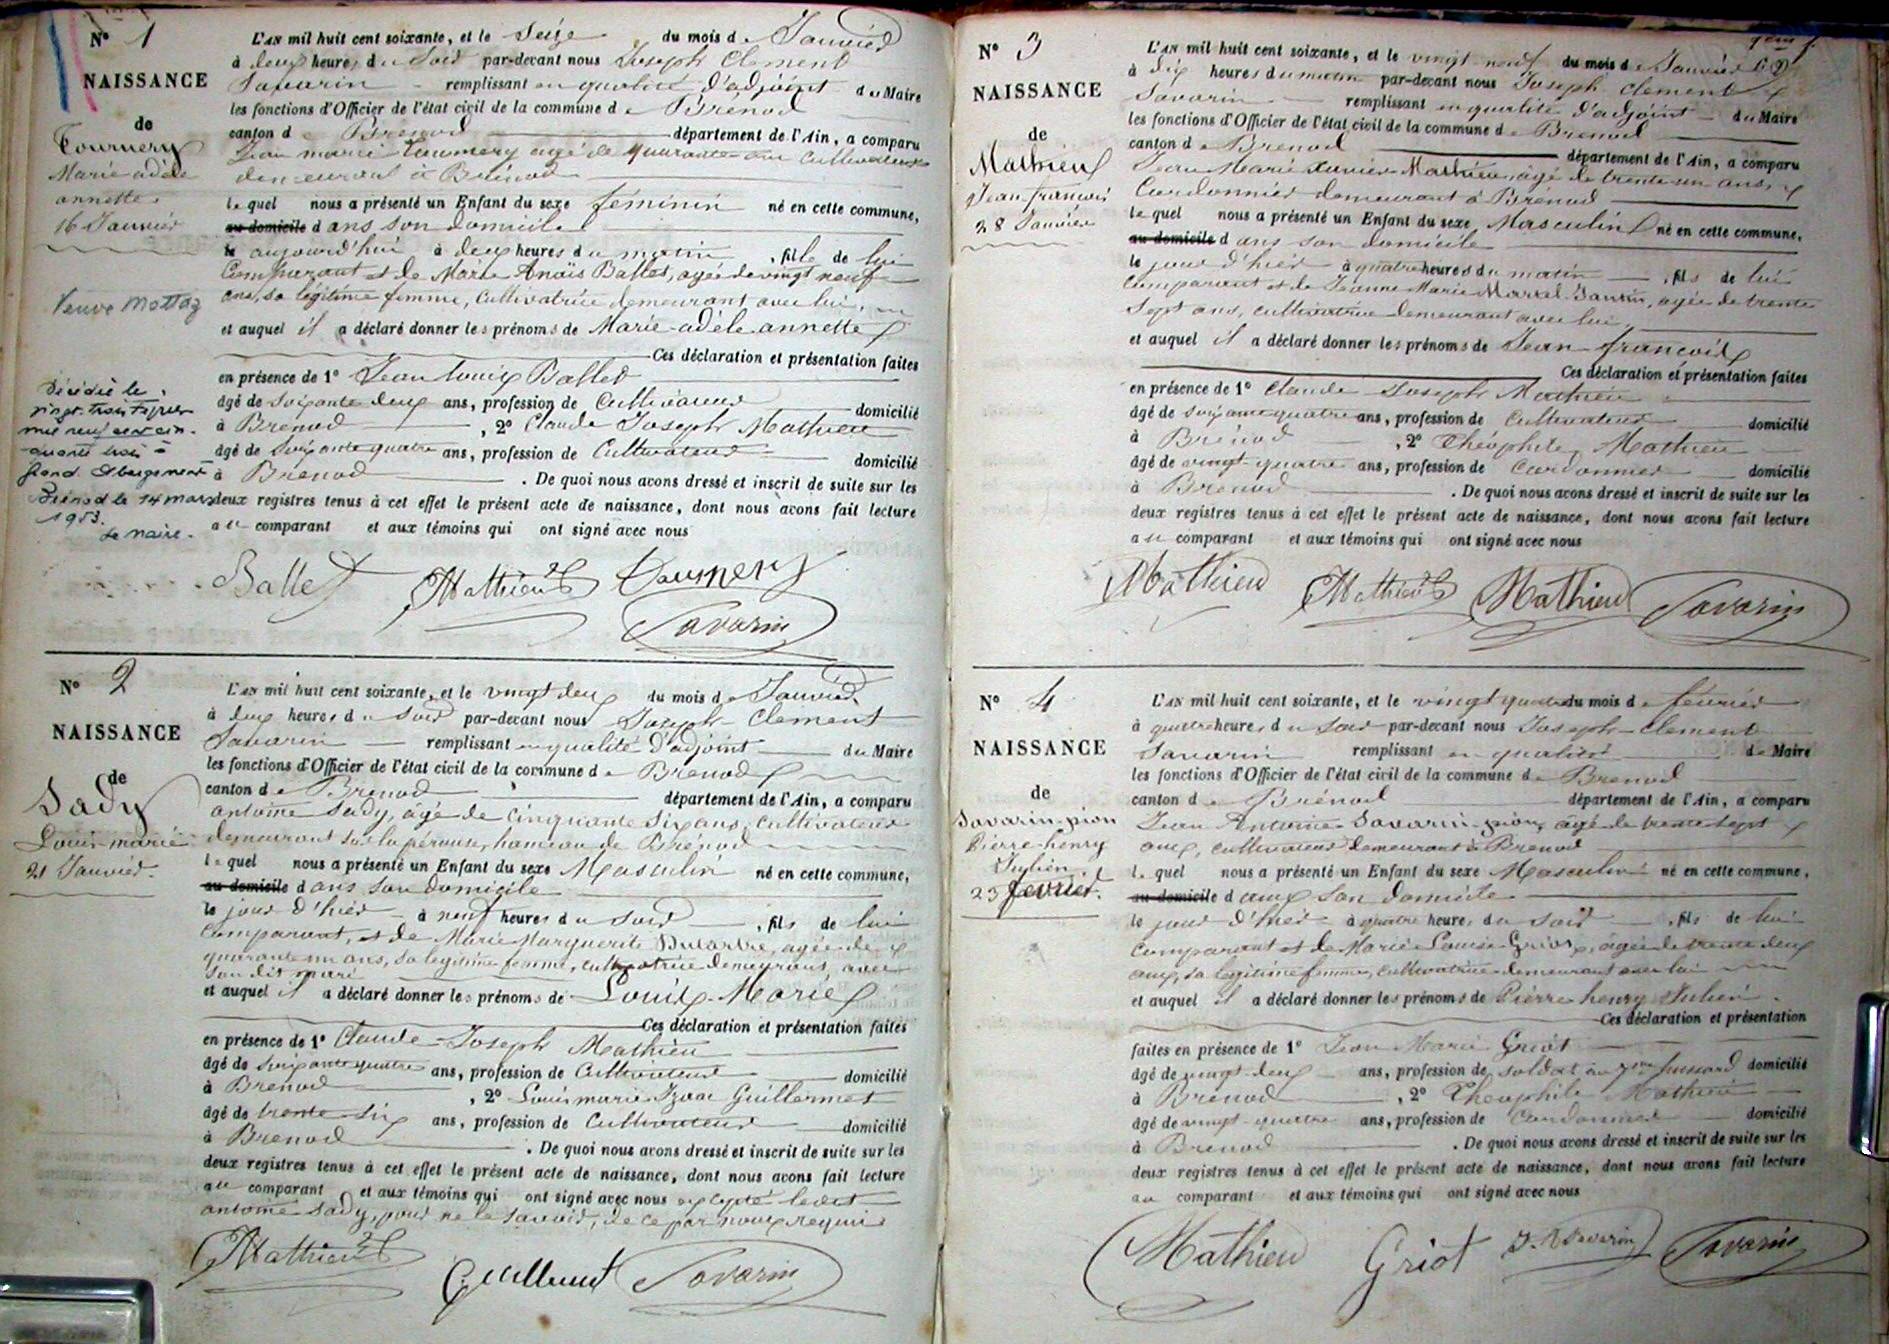 N° 1
NAISSANCE
de
Tournery
Marie adèle
annette
16 Janvier
Veuve Mottaz
Décédée le
vingt trois février
mil neuf cent cin-
quante trois à
Grand Abergement
Brénod le 14 mars
1953.
Le maire.
L'AN mil huit cent soixante, et le Seize du mois de Janvier
à deux heures du Soir par-devant nous Joseph Clement
Savarin remplissant en qualité d'adjoint du Maire
les fonctions d'Officier de l'état civil de la commune de Brénod
canton de Brénod département de l'Ain, a comparu
Jean marie Tournery agé de quarante ans Cultivateur
demeurant à Brénod
le quel nous a présenté un Enfant du sexe féminin né en cette commune,
au domicile dans son domicile
le aujourd'hui à deux heures du matin, fille de lui
Comparant et de Marie Anaïs Ballet, agée de vingt neuf
ans, sa légitime femme, Cultivatrice demeurant avec lui,
et auquel il a déclaré donner les prénoms de Marie adèle annette
Ces déclaration et présentation faites
en présence de 1° Jean Louis Ballet
âgé de Soixante deux ans, profession de Cultivateur domicilié
à Brenod, 2° Claude Joseph Mathieu
âgé de Soixante quatre ans, profession de Cultivateur domicilié
à Brenod. De quoi nous avons dressé et inscrit de suite sur les
deux registres tenus à cet effet le présent acte de naissance, dont nous avons fait lecture
au comparant et aux témoins qui ont signé avec nous
Ballet Mathieu Tournery
Savarin
N° 2
NAISSANCE
de
Sady
Louis marie
21 Janvier.
L'AN mil huit cent soixante, et le vingt deux du mois de Janvier
à deux heures du soir par-devant nous Joseph Clement
Savarin remplissant en qualité d'adjoint du Maire
les fonctions d'Officier de l'état civil de la commune de Brenod
canton de Brenod département de l'Ain, a comparu
antoine Sady, âgé de cinquante six ans, cultivateur
demeurant sur la pérouse, hameau de Brénod
le quel nous a présenté un Enfant du sexe Masculin né en cette commune,
au domicile dans son domicile
le jour d'hier à neuf heures du soir, fils de lui
Comparant, et de Marie Marguerite Dutartre, agée de
quarante un ans, sa légitime femme, cultivatrice demeurant avec
son dit mari
et auquel il a déclaré donner les prénoms de Louis Marie
Ces déclaration et présentation faites
en présence de 1° Claude Joseph Mathieu
âgé de soixante quatre ans, profession de Cultivateur domicilié
à Brenod, 2° Louis marie Izaac Guillermet
âgé de trente six ans, profession de Cultivateur domicilié
à Brenod. De quoi nous avons dressé et inscrit de suite sur les
deux registres tenus à cet effet le présent acte de naissance, dont nous avons fait lecture
au comparant et aux témoins qui ont signé avec nous excepté ledit
antoine Sady, pour ne le savoir, de ce par nous requis
Mathieu Guillermet Savarin
N° 3
NAISSANCE
de
Mathieu
Jean françois
28 Janvier
L'AN mil huit cent soixante, et le vingt neuf du mois de Janvier
à dix heures du matin par-devant nous Joseph Clement
Savarin remplissant en qualité d'adjoint du Maire
les fonctions d'Officier de l'état civil de la commune de Brenod
canton de Brenod département de l'Ain, a comparu
Jean Marie Xavier Mathieu, âgé de trente un ans,
Cordonnier demeurant à Brénod
le quel nous a présenté un Enfant du sexe Masculin né en cette commune,
au domicile dans son domicile
le jour d'hier à quatre heures du matin, fils de lui
Comparant et de Jeanne Marie Martel Jantin, agée de trente
sept ans, cultivatrice demeurant avec lui,
et auquel il a déclaré donner les prénoms de Jean françois
Ces déclaration et présentation faites
en présence de 1° Claude Joseph Mathieu
âgé de soixante quatre ans, profession de Cultivateur domicilié
à Brénod, 2° Théophile Mathieu
âgé de vingt quatre ans, profession de Cordonnier domicilié
à Brenod. De quoi nous avons dressé et inscrit de suite sur les
deux registres tenus à cet effet le présent acte de naissance, dont nous avons fait lecture
au comparant et aux témoins qui ont signé avec nous
Mathieu Mathieu Mathieu Savarin
N° 4
NAISSANCE
de
Savarin-pion
Pierre henry
Julien.
23 février.
L'AN mil huit cent soixante, et le vingt quatre du mois de février
à quatre heures du soir par-devant nous Joseph Clement
Savarin remplissant en qualité de Maire
les fonctions d'Officier de l'état civil de la commune de Brenod
canton de Brénod département de l'Ain, a comparu
Jean Antoine Savarin-pion, âgé de trente sept
ans, cultivateur demeurant à Brenod
le quel nous a présenté un Enfant du sexe Masculin né en cette commune,
au domicile dans son domicile
le jour d'hier à quatre heures du soir, fils de lui
Comparant et de Marie Louise Griot, agée de trente deux
ans, sa légitime femme, cultivatrice demeurant avec lui
et auquel il a déclaré donner les prénoms de Pierre henry Julien.
Ces déclaration et présentation
faites en présence de 1° Jean Marie Griot
âgé de vingt deux ans, profession de soldat au 7me hussard domicilié
à Brénod, 2° Théophile Mathieu
âgé de vingt quatre ans, profession de Cordonnier domicilié
à Brenod. De quoi nous avons dressé et inscrit de suite sur les
deux registres tenus à cet effet le présent acte de naissance, dont nous avons fait lecture
au comparant et aux témoins qui ont signé avec nous
Mathieu Griot J. A Savarin Savarin